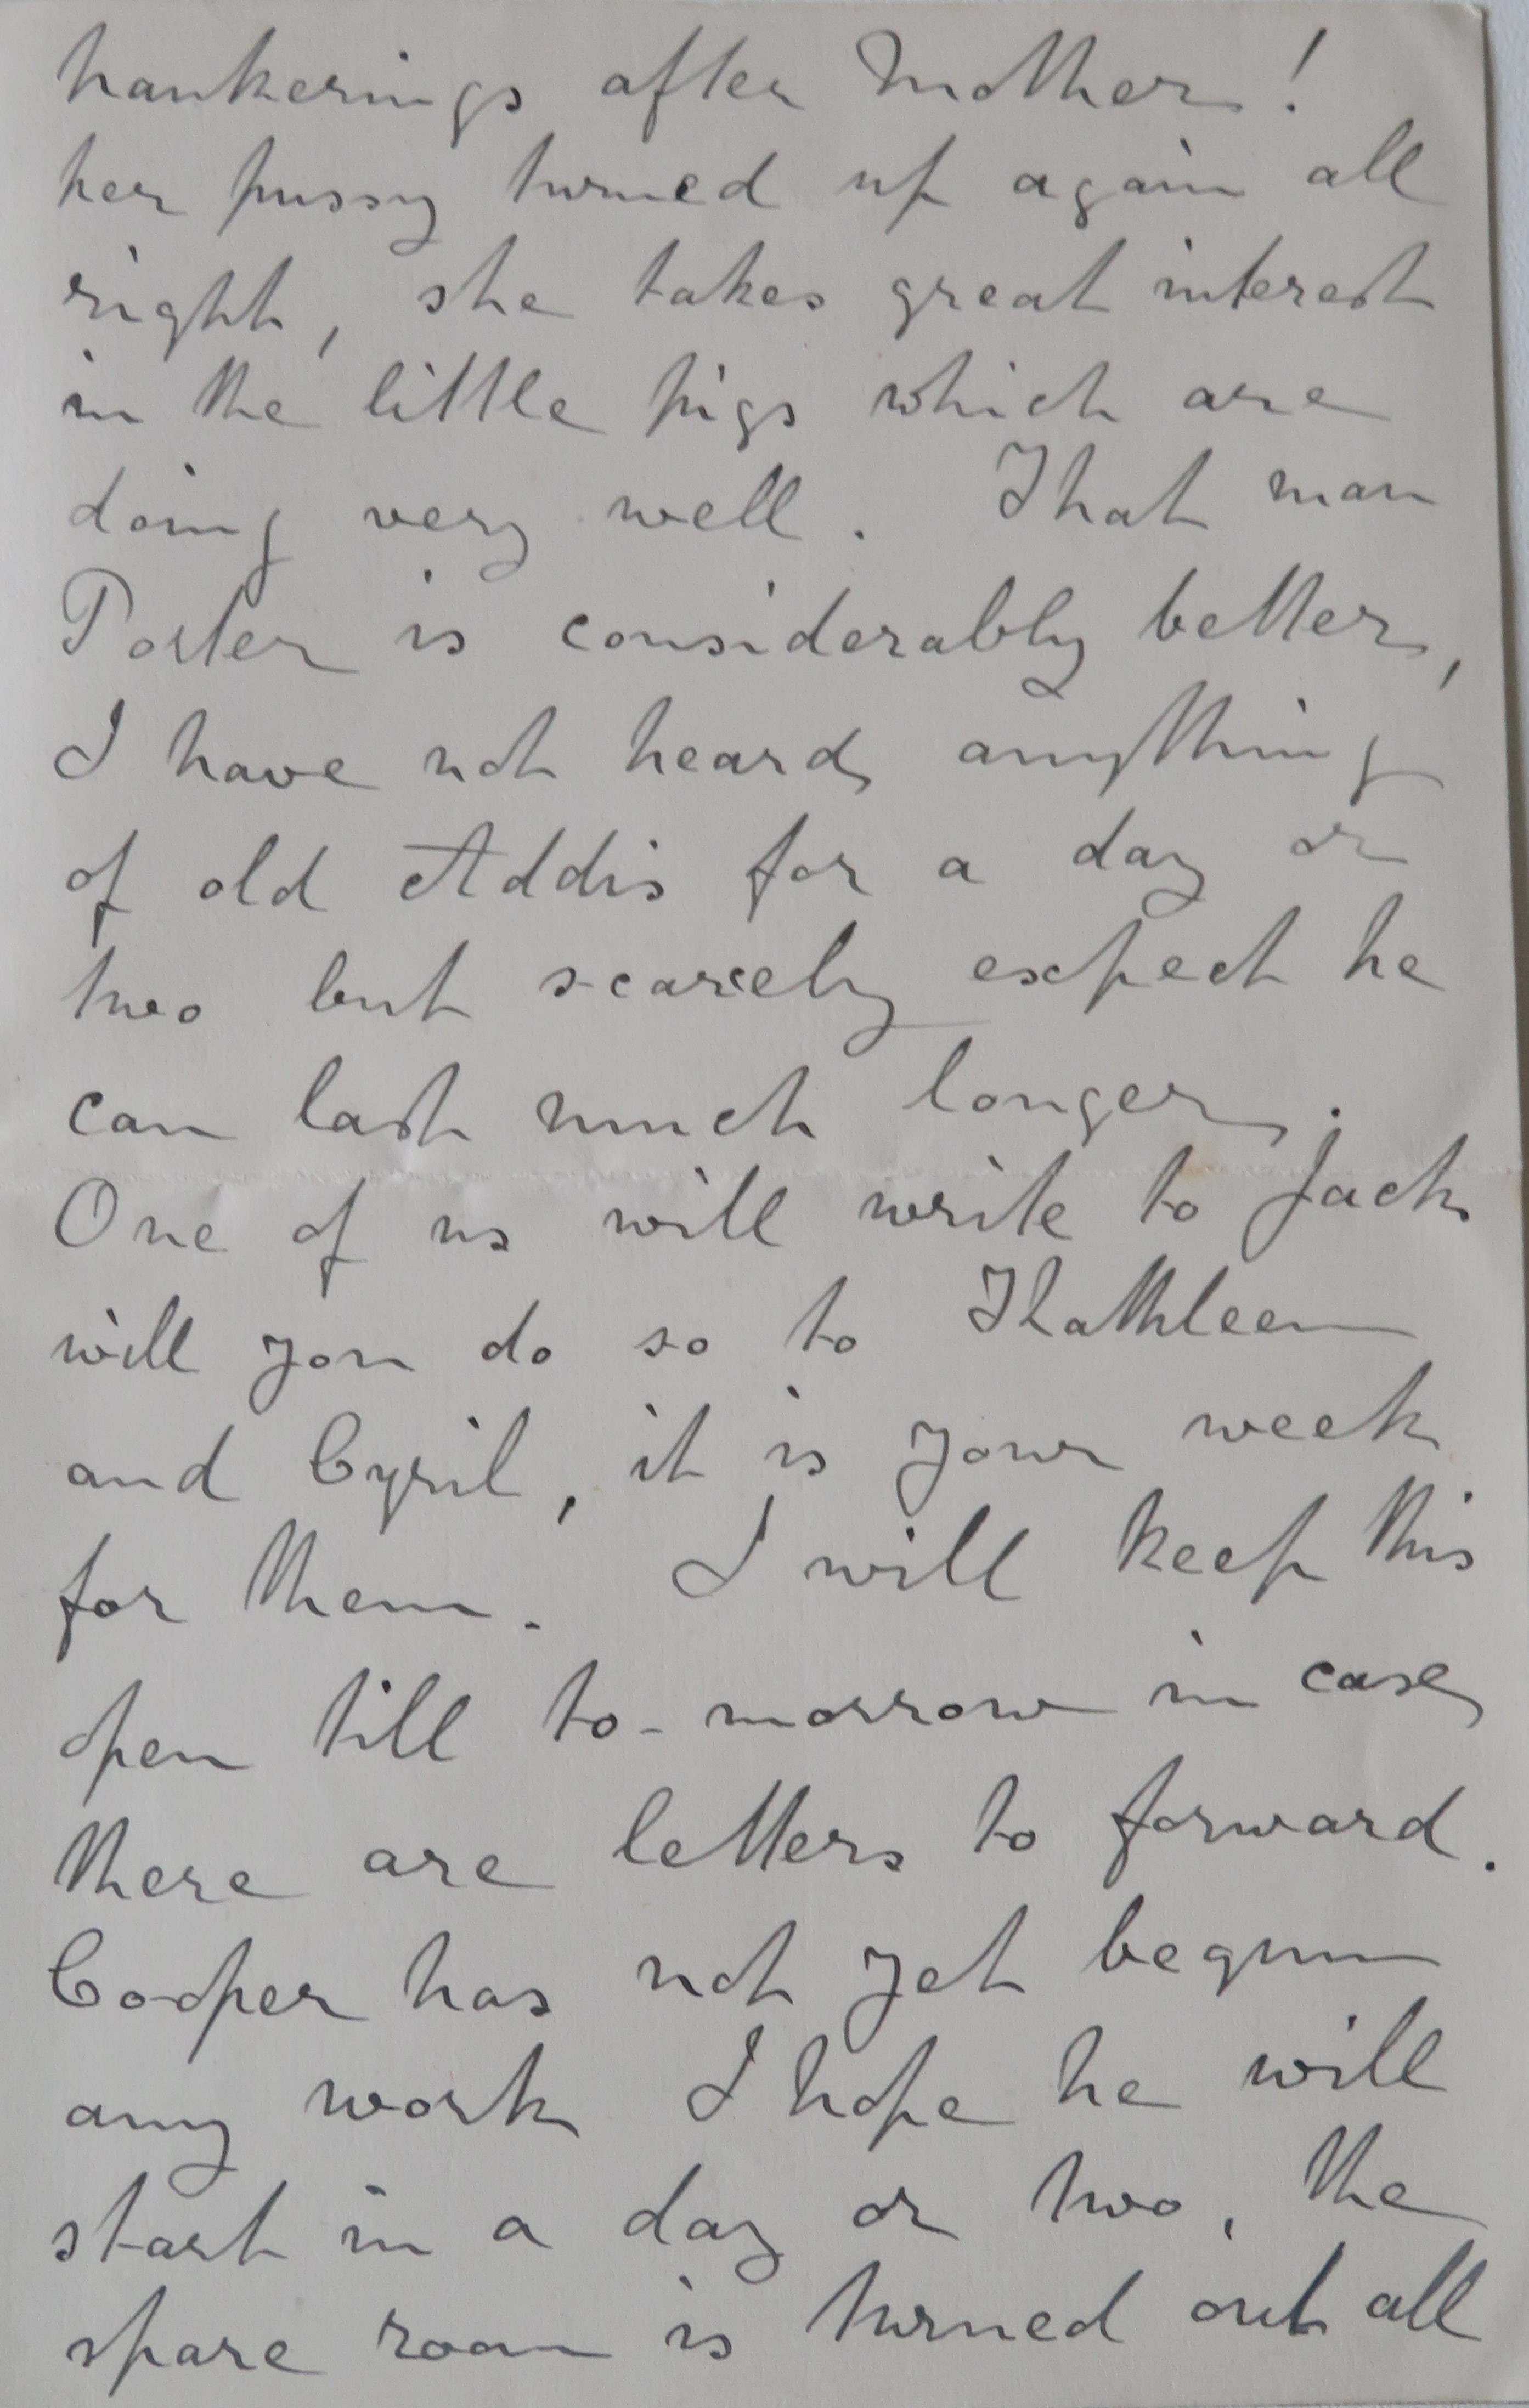 hankerings after Mother!
her pussy turned up again all
right, she takes great interest
in the little pigs which are
doing very well. That man
Porter is considerably better,
I have not heard anything
of old Addis for a day or
two but scarcely expect he
can last much longer.
One of us will write to Jack
will you do so to Kathleen
and Cyril, it is your week
for them. I will keep this
open till to-morrow in case
there are letters to forward.
Cooper has not yet begun
any work I hope he will
start in a day or two, the
spare room is turned out all